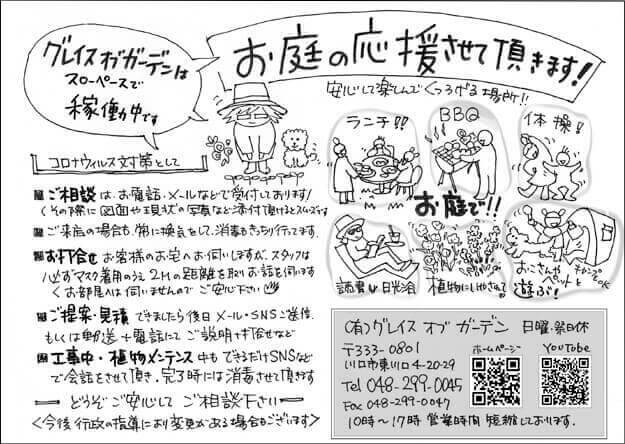 グレイス オブ ガーデンは
スローペースで
稼働中です
お庭の応援させて頂きます!
安心して楽しんでくつろげる場所!!
コロナウィルス対策として
ランチ!!
BBQ
体操!
お庭で!!
読書や日光浴
植物にいやされて!
おこさんや
ペットと
遊ぶ!
キャンプも
OK
ご相談は、お電話・メールなどで受付しております!
くその際に図面や現状の写真など添付頂けるとスムーズです
ご来店の場合も、常に換気をして、消毒もきっちり行ってます。
お打合せ お客様のお宅へお伺いしますが、スタッフは
必ずマスク着用のうえ2Mの距離を取りお話を伺います
くお部屋へは伺いませんのでご安心下さい
ご提案・見積 できましたら後日メール・SNSご送信、
もしくは郵送+電話にてご説明+打合せなど
工事中・植物メンテナンス中も できるだけSNSなど
で会話をさせて頂き、完了時には消毒させて頂きます
どうぞ ご安心して ご相談下さい
<今後 行政の指導により変更がある場合もございます>
(有)グレイス オブ ガーデン 日曜・祭日休
〒333-0801
川口市東川口4-20-29
Tel 048-299-0045
Fax 048-299-0047
ホームページ
YOUTube
10時〜17時 営業時間 短縮しております。